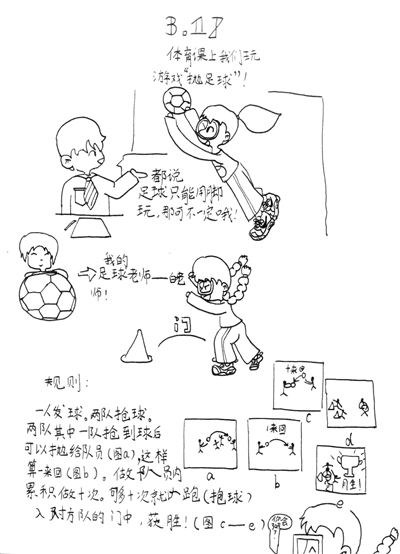 3.18
体育课上我们玩
游戏“抛足球”！
都说
足球只能用脚
玩，那可不一定哦！
我的
足球老师—白老
师！
门
规则：
一人发球。两队抢球。
两队其中一队抢到球后
可以抛给队员（图a），这样
算一来回（图b）。做队人员内
累积做十次。够十次就跑（抱球）
入对方队的门中，获胜！（图c—e）
十来回
c
d
a
1来回
b
胜！
e